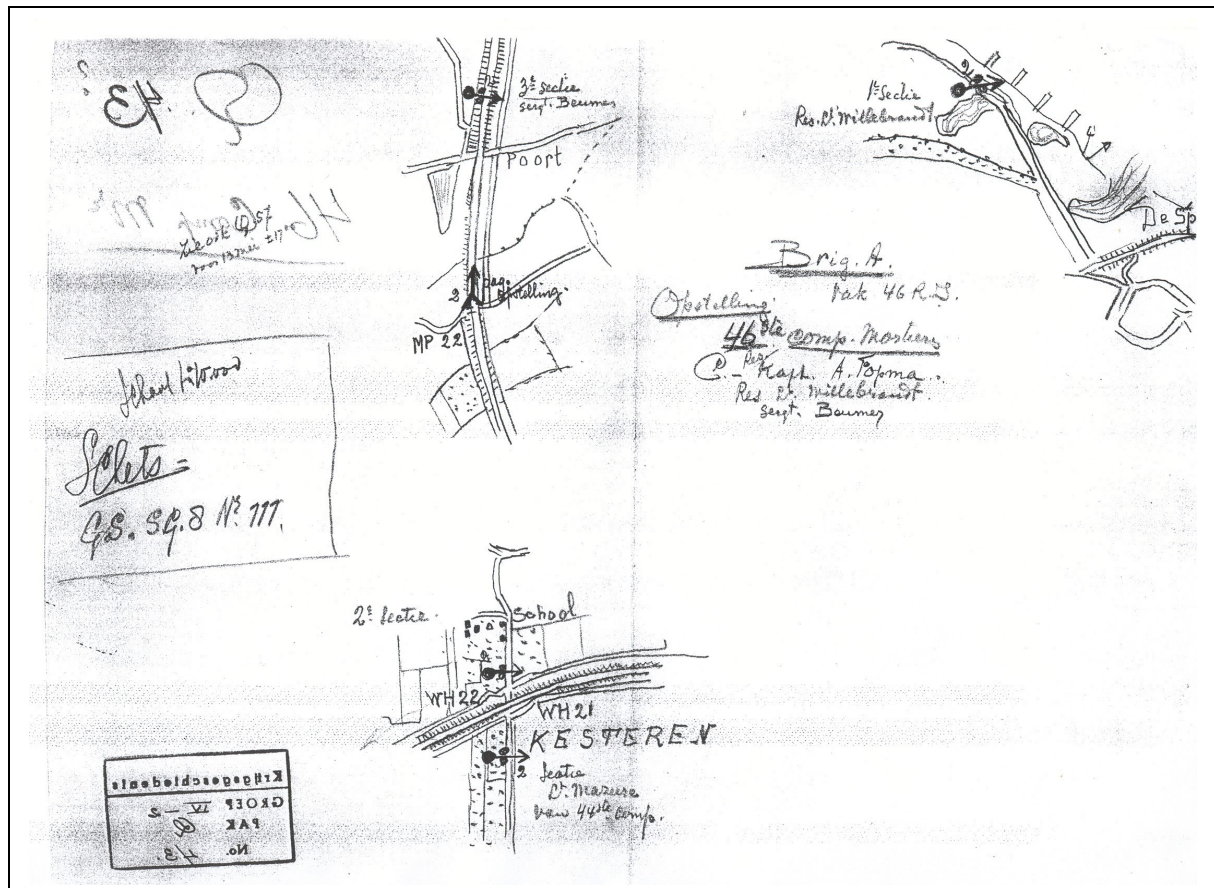 4/3
46 Comp Mr
zie ook
Schets =
G.S. SG.8 Nº 111.
3e sectie
sergt. Baumer
Poort
2
opstelling
MP 22
1e Sectie
Res. Lt. Willebrandt
2
De Sp
Brig. A.
Vak 46 R.I.
Opstelling
46ste Comp. Mortieren
C - Res. Kapt. A. Topma.
Res Lt. Willebrandt
sergt. Baumer
2e Sectie
School
WH22
WH21
KESTEREN
2
Sectie
Lt. Mazure
van 44ste comp.
Krijgsgeschiedenis
GROEP IV - 2
PAK
No. 4/3.